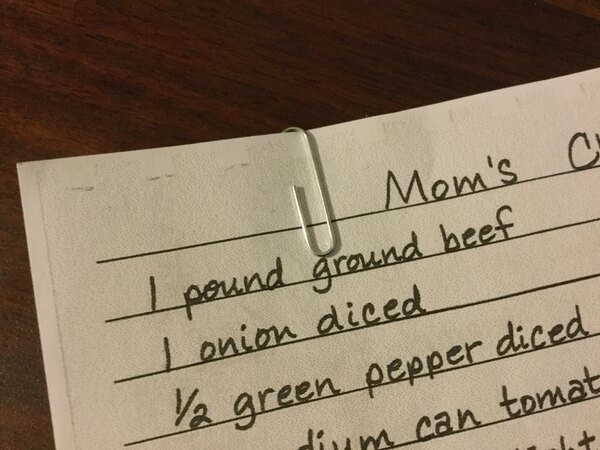 Mom's
1 pound ground beef
1 onion diced
1/2 green pepper diced
can